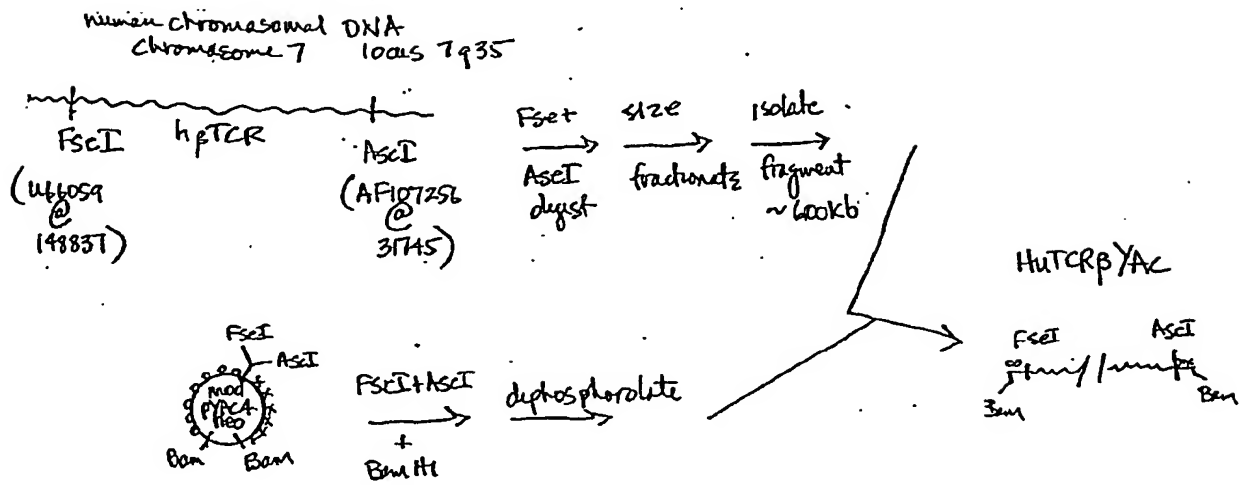 human chromasomal DNA
Chromosome 7 locus 7q35
FseI hβTCR AscI
(U66059 @ 148837)
(AF107256 @ 31745)
Fse+
AscI
digest
size
fractionate
isolate
fragment
~600kb
HuTCRβ YAC
FseI
AscI
Bam
Bam
FseI
AscI
mod
pYAC4
neo
Bam Bam
FseI+AscI
+
Bam HI
dephosphorolate